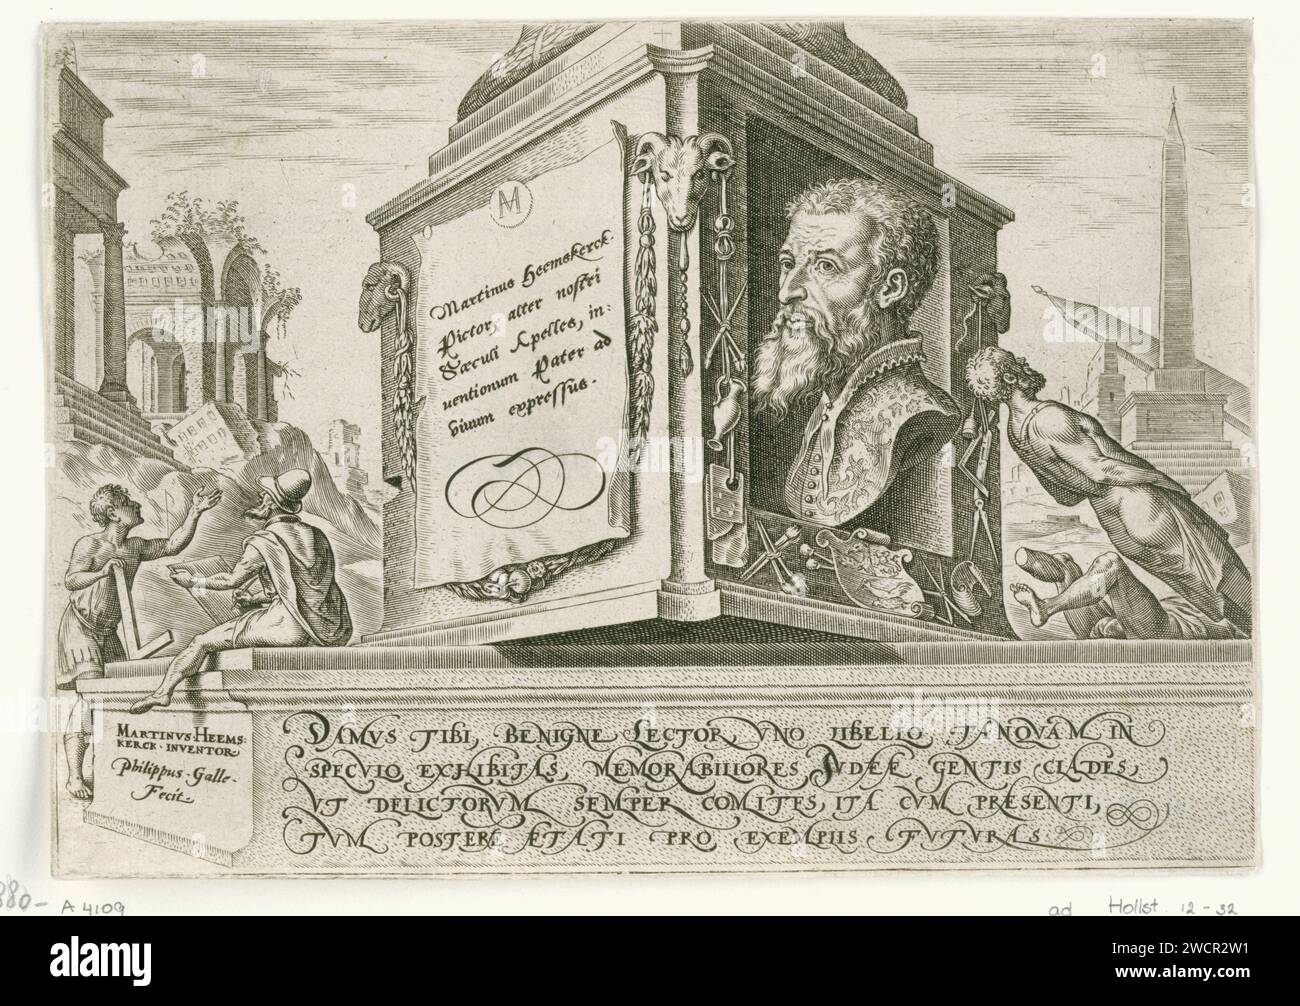 M
Martinus Heemskerck.
Pictor, alter nostri
Sæculi Apelles, in-
uentionum Pater ad
viuum expressus.
MARTINVS·HEEMS:
KERCK·INVENTOR
Philippus·Galle·
Fecit
DAMVS TIBI, BENIGNE LECTOR, VNO LIBELLO, TANQVAM IN
SPECVLO, EXHIBITAS, MEMORABILIORES IVDEÆ GENTIS CLADES,
VT DELICTORVM SEMPER COMITES, ITA CVM PRÆSENTI,
TVM POSTERÆ ÆTATI PRO EXEMPLIS FVTVRAS.
880- A 4109
ad Hollst. 12-32
alamy
Image ID: 2WCR2W1
www.alamy.com